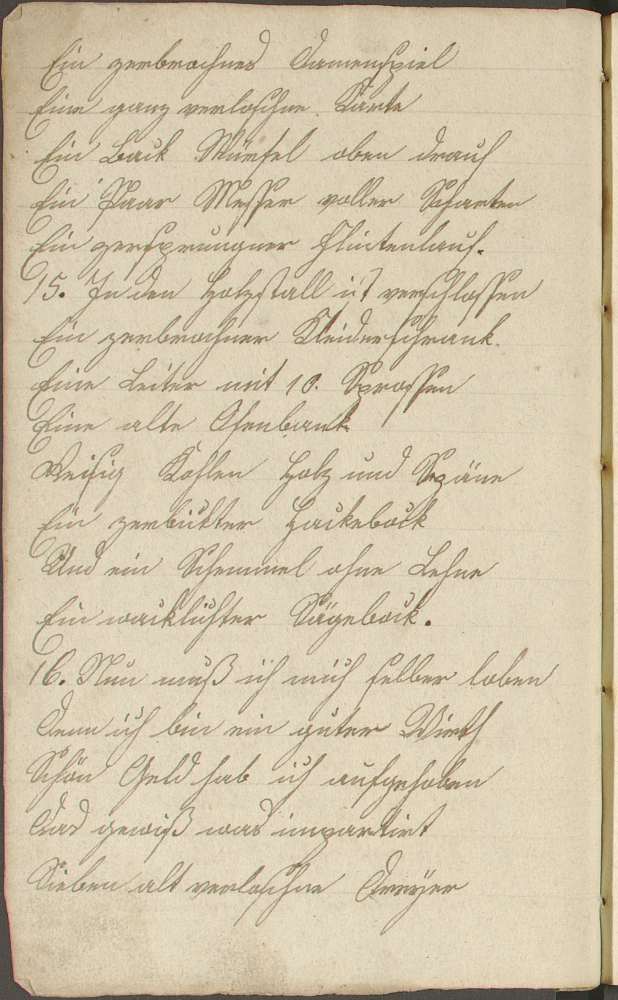 Ein zerbrochnes Damenspiel
Eine ganz verloschne Karte
Ein Back Würfel oben drauf
Ein Paar Messer voller Scharten
Ein zersprungner Flintenlauf.
15. In den Holzstall ist verschlossen
Ein zerbrochner Kleiderschrank.
Eine Leiter mit 10. Sprossen
Eine alte Ofenbank
Reisig Kohlen Holz und Späne
Ein zerbickter Hackebock
Und ein Schemmel ohne Lehne
Ein wacklichter Sägebock.
16. Nun muß ich mich selber loben
Denn ich bin ein guter Wirth
Schön Geld hab ich aufgehoben
Das gewiß was importirt
Sieben alt verloschne Dreyer